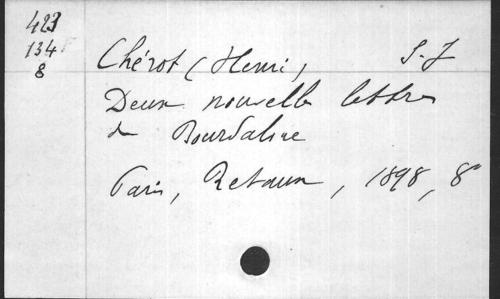 423
134
8
Chérot (Henri) S. J
Deux nouvelles lettres
de Bourdaloue
Paris, Retaux, 1898, 8°